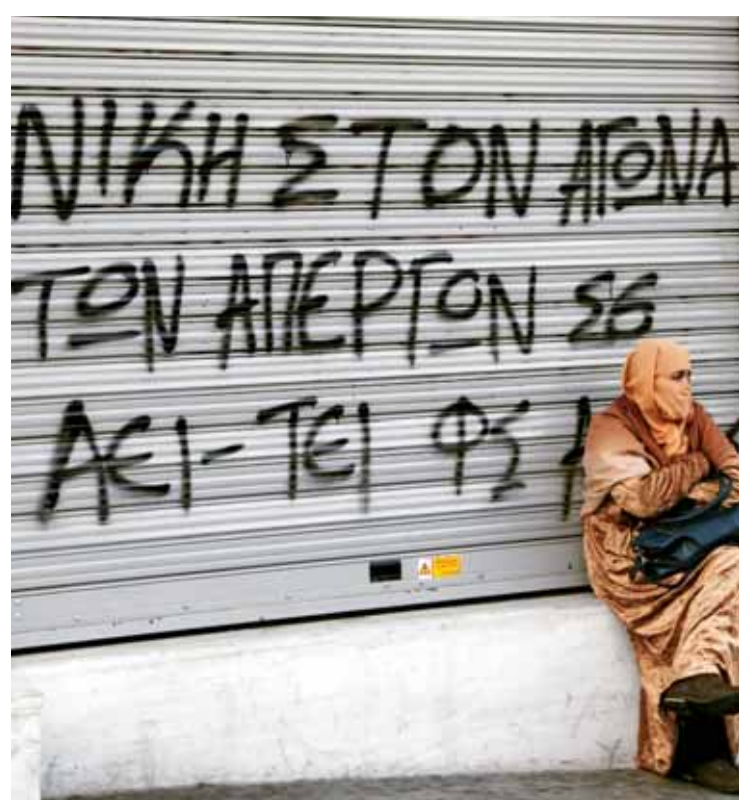 ΝΙΚΗ ΣΤΟΝ ΑΓΩΝΑ
ΤΩΝ ΑΠΕΡΓΩΝ ΣΕ
ΑΕΙ-ΤΕΙ ΦΣ